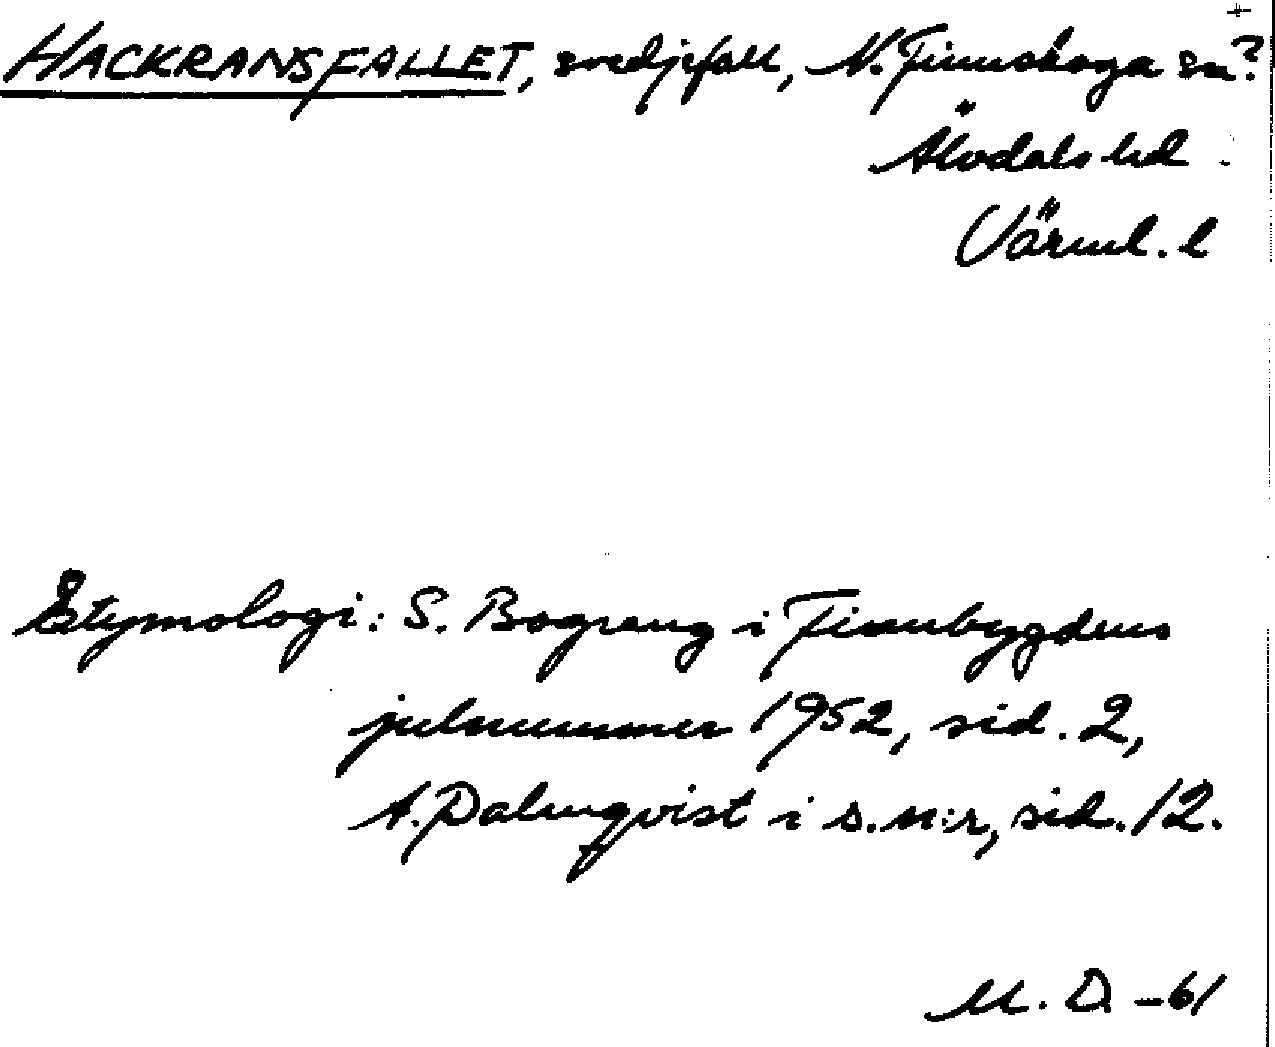 HACKRANSFALLET, svedjefall, N. Finnskoga sn?
Älvdals hd
Värml. l
Etymologi: S. Bograng i Finnbygdens
julnummer 1952, sid. 2,
A. Dalmqvist i s. n:r, sid. 12.
M. D -61